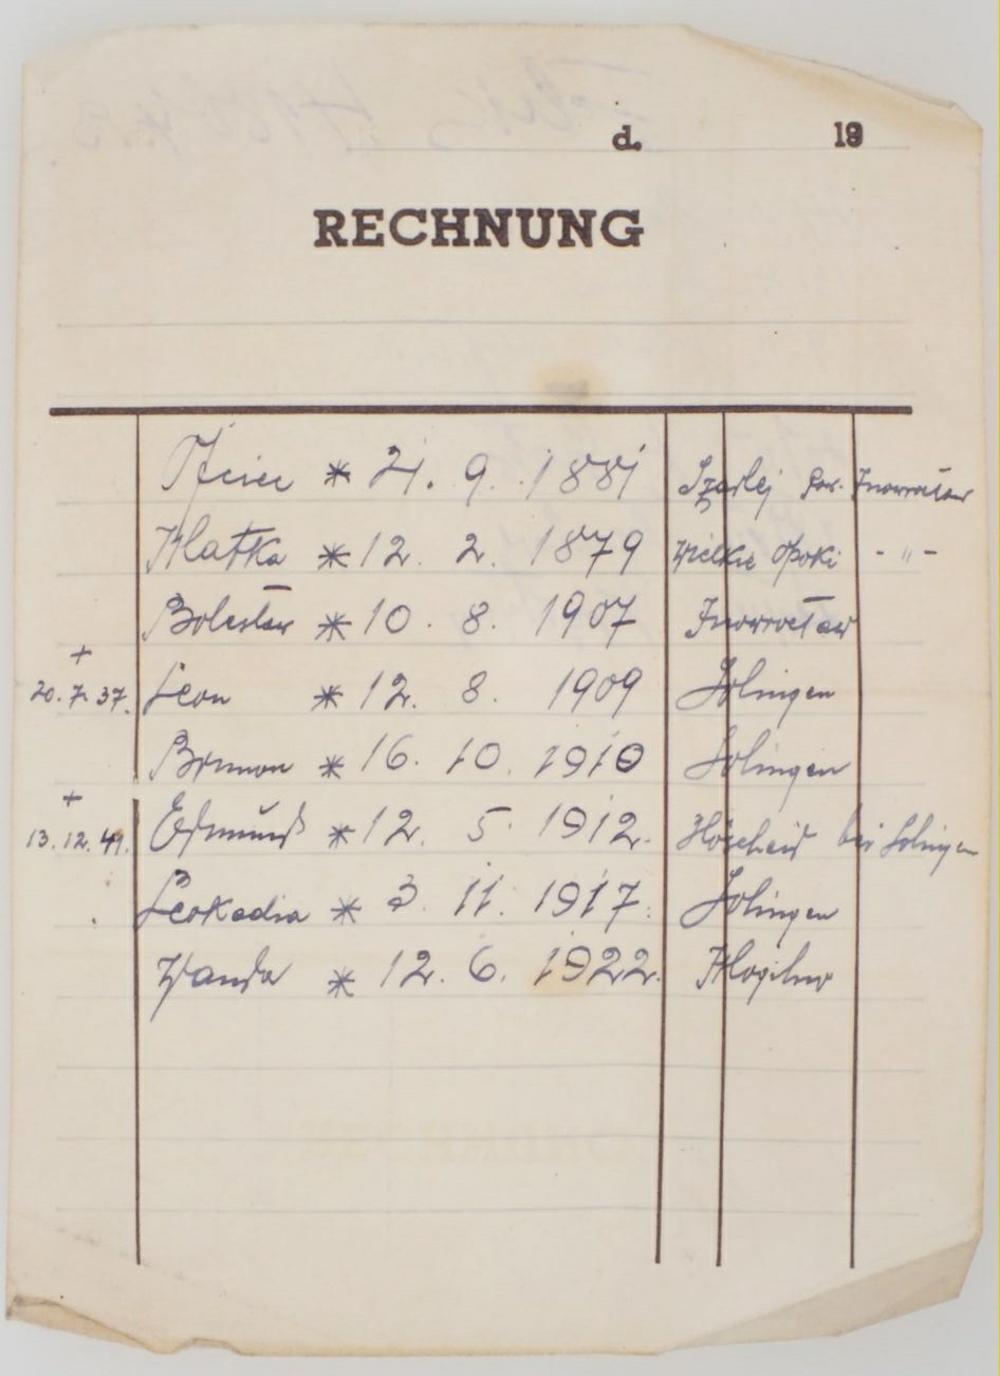 d. 19
RECHNUNG
Ojciec * 21. 9. 1881 Szarlej pow. Inowrocław
Matka * 12. 2. 1879 Wielkie Opoki - " -
Bolesław * 10. 8. 1907 Inowrocław
+
20. 7. 37. Leon * 12. 8. 1909 Solingen
Brunon * 16. 10. 1910 Solingen
+
13. 12. 41. Edmund * 12. 5. 1912. Höscheid bei Solingen
Leokadia * 3. 11. 1917. Solingen
Wanda * 12. 6. 1922. Mogilno